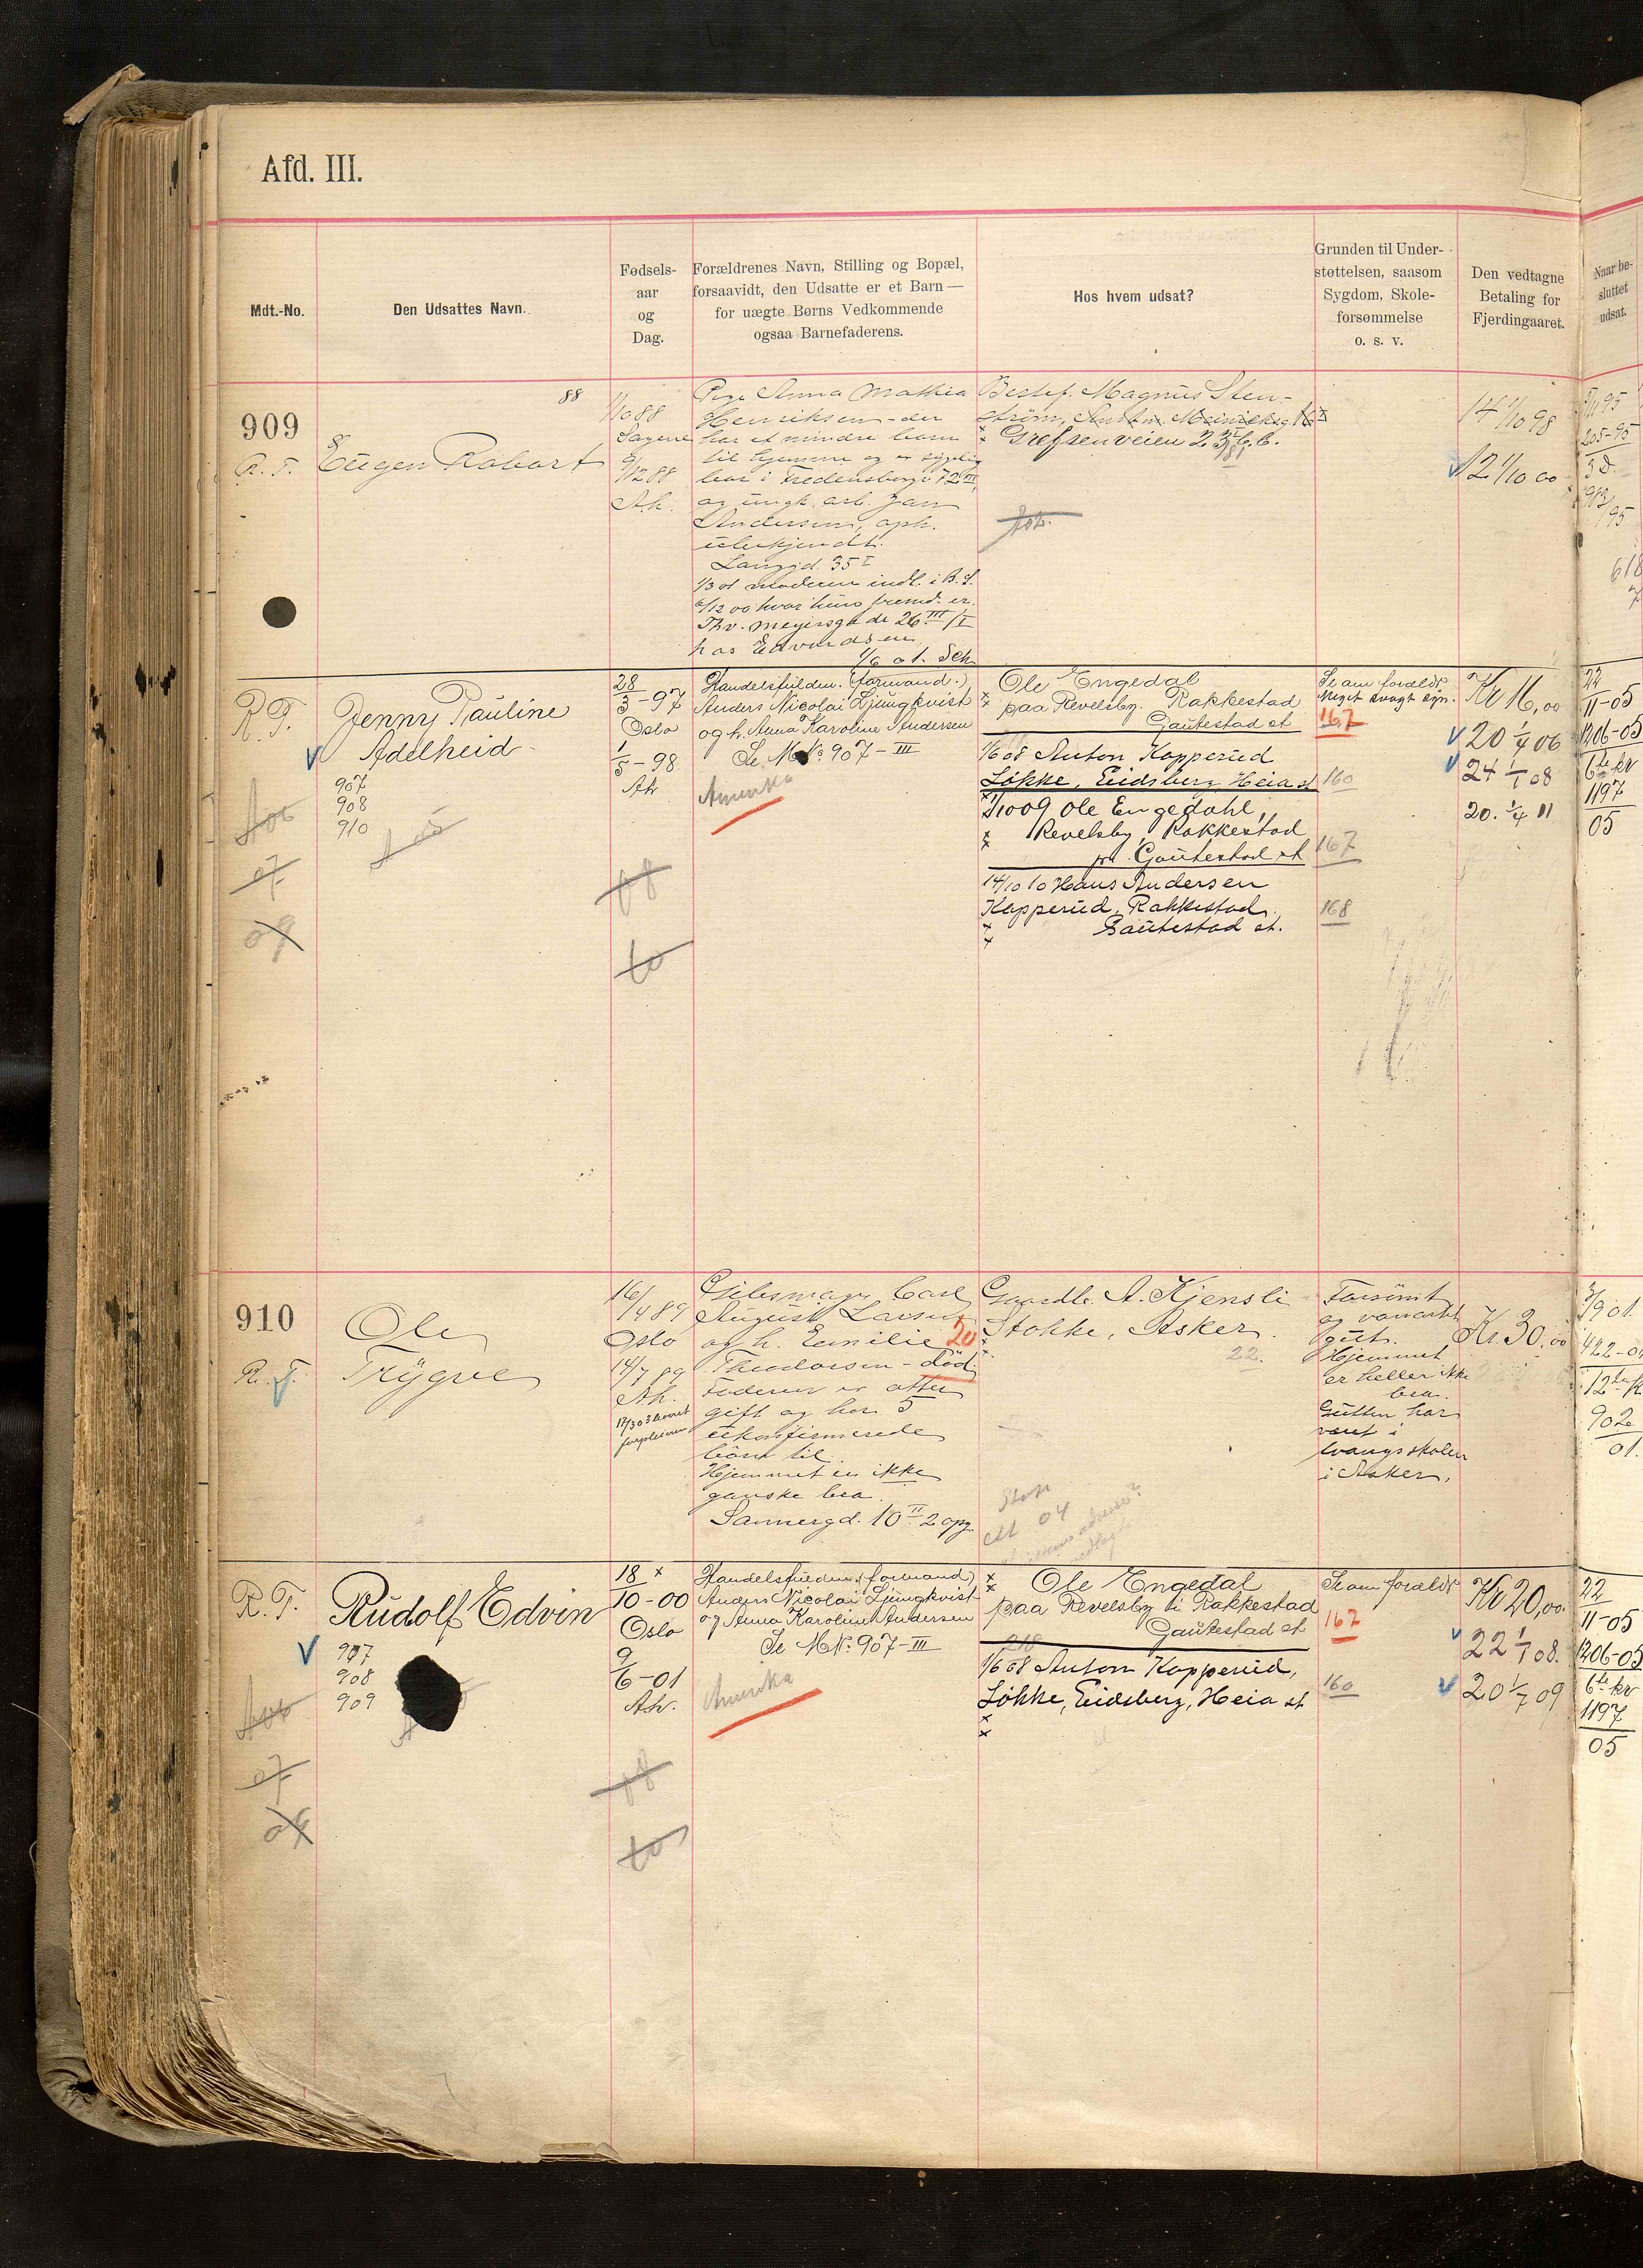 Afd. III.
Mdt.-No.
Den Udsattes Navn.
Fødsels-
aar
og
Dag.
Forældrenes Navn, Stilling og Bopæl,
forsaavidt, den Udsatte er et Barn —
for uægte Børns Vedkommende
ogsaa Barnefaderens.
Hos hvem udsat?
Grunden til Under-
støttelsen, saasom
Sygdom, Skole-
forsømmelse
o. s. v.
Den vedtagne
Betaling for
Fjerdingaaret.
Naar be-
sluttet
udsat.
909
R. T.
88
Eugen Robart
1/10 88
Sagene
9/12 88
Ak.
Pige Anna Mathea
Henriksen der
har et mindre barn
til hjemme og er sygelig
bor i Fredensborgv 72 III
og ungk. arb. Jan
Andersen, oph.
ubekjendt.
Langgd. 35 I
1/3 01 moderen indl. i B. S.
6/12 00 hvor hun fremd. er.
Thv. Meyersgade 26 III/I
hos Edvardsen
1/6 01. Sch
Bestef. Magnus Sten-
strøm,
x Grefsenveien 2
14 1/10 98
12 1/10 00
205-95
95
R. T.
Jenny Pauline
Adelheid
907
908
910
07
09
28
3-97
Oslo
1
5-98
Ak
08
10
Handelsfuldm. (formand.)
Anders Nicolai Ljungkvist
og h. Anna Karoline Andersen
Se M No. 907-III
Amerika
Ole Engedal
paa Revelsby. Rakkestad
Gautestad st
1/6 08 Anton Kopperud
Løkke, Eidsberg, Heia st
1/10 09 Ole Engedahl,
Revelsby, Rakkestad
pr. Gautestad st
14/10 10 Hans Andersen
Kopperud, Rakkestad.
Gautestad st.
Se am foralds
Meget svagt syn.
167
160
167
168
Kr 16,00
20 1/4 06
24 1/1 08
20. 1/4 11
22
11-05
1206-05
6te kr
1197
05
910
R. T.
Ole
Trygve
16/4 89
Oslo
14/7 89
Ak.
Filesmager Carl
August Larsen
og h. Emilie 20
Theodorsen - död.
Faderen er atter
gift og har 5
ukonfirmerede
börn til.
Hjemmet er ikke
ganske bra.
Sannergd. 10 II 2 opg.
Gaardbr. A. Kjensli
Stokke, Asker.
22.
04
Forsömt
og vanartet
gut.
Hjemmet
er heller ikke
bra.
Gutten har
været i
tvangsskolen
i Asker.
Kr. 30,00
3/9 01.
422-01
902
01.
R. T.
Rudolf Edvin
907
908
909
07
09
18 x
10-00
Oslo
9
6-01
Ak.
08
10
Handelsfuldm. (formand)
Anders Nicolai Ljungkvist
og Anna Karoline Andersen
Se M No. 907-III
Amerika
x Ole Engedal
paa Revelsby i Rakkestad
Gautestad st
1/6 08 Anton Kopperud,
Løkke, Eidsberg, Heia st
Se am foralds
167
160
Kr 20,00.
22 1/1 08.
20 1/7 09
22
11-05
1206-05
6te kr
1197
05